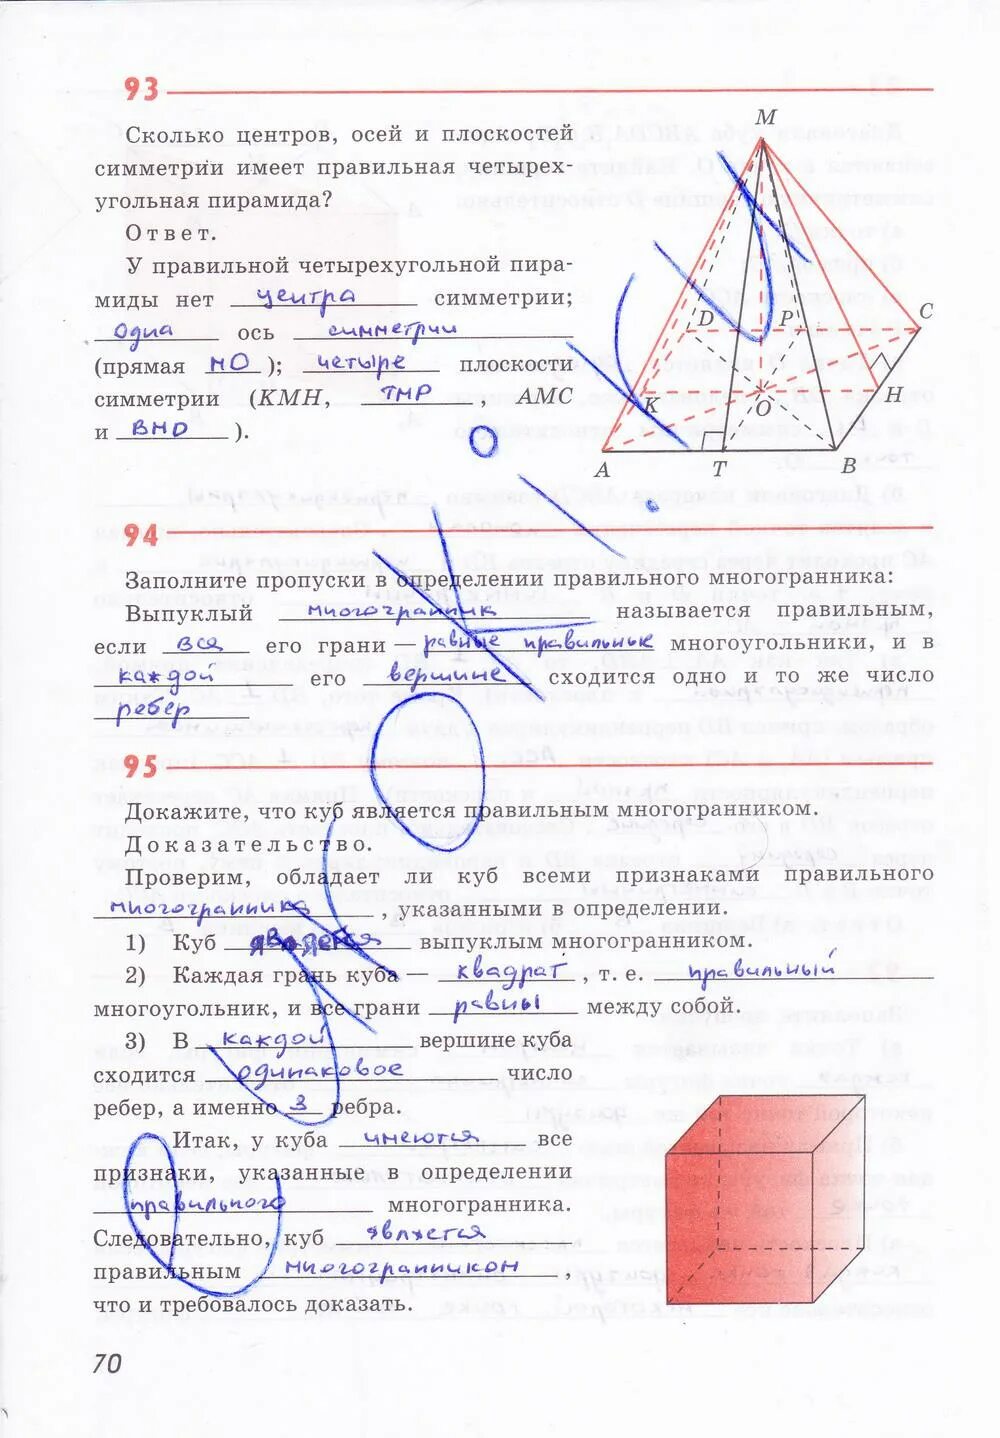 93
Сколько центров, осей и плоскостей
симметрии имеет правильная четырех-
угольная пирамида?
Ответ.
У правильной четырехугольной пира-
миды нет центра симметрии;
одна ось симметрии
(прямая МО); четыре плоскости
симметрии (KMH, ТМР, AMC
и ВМD).
M
D
P
C
K
O
H
A
T
B
94
Заполните пропуски в определении правильного многогранника:
Выпуклый многогранник называется правильным,
если все его грани — равные правильные многоугольники, и в
каждой его вершине сходится одно и то же число
ребер
95
Докажите, что куб является правильным многогранником.
Доказательство.
Проверим, обладает ли куб всеми признаками правильного
многогранника, указанными в определении.
1) Куб является выпуклым многогранником.
2) Каждая грань куба — квадрат, т. е. правильный
многоугольник, и все грани равны между собой.
3) В каждой вершине куба
сходится одинаковое число
ребер, а именно 3 ребра.
Итак, у куба имеются все
признаки, указанные в определении
правильного многогранника.
Следовательно, куб является
правильным многогранником,
что и требовалось доказать.
70